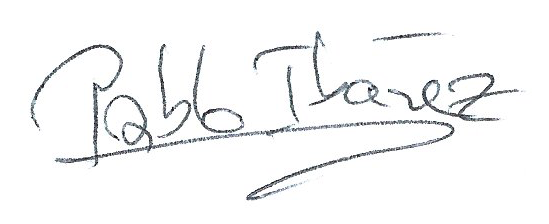 Pablo Ibáñez